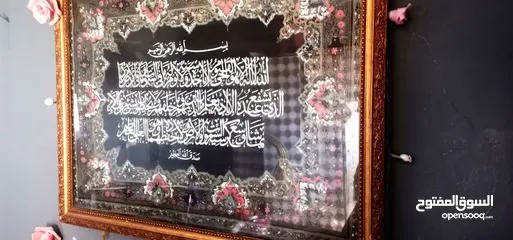 بسم الله الرحمن الرحيم
الله لا إله إلا هو الحي القيوم لا تأخذه سنة ولا نوم له ما في السموات وما في الأرض من ذا
الذي يشفع عنده إلا بإذنه يعلم ما بين أيديهم وما خلفهم ولا يحيطون بشيء من علمه إلا
بما شاء وسع كرسيه السموات والأرض ولا يؤده حفظهما وهو العلي العظيم
صدق الله العظيم
السوق المفتوح
opensooq.com